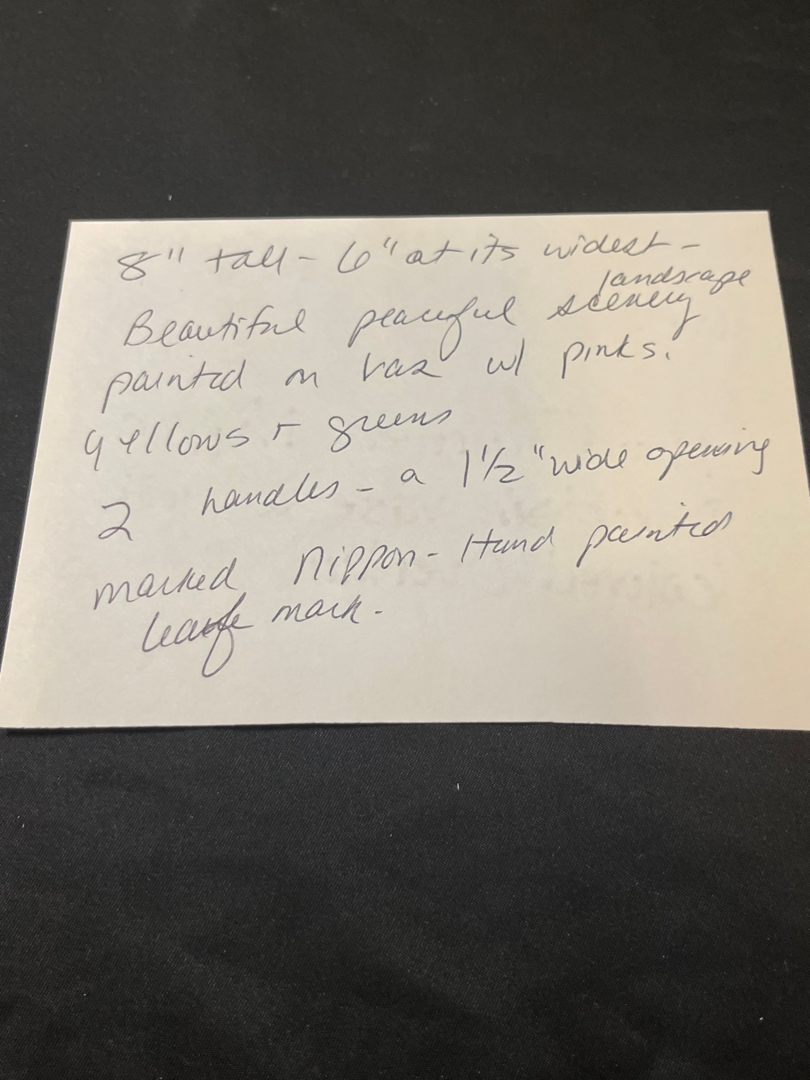 8" tall - 6" at its widest -
landscape
Beautiful peaceful scenery
painted on vas w/ pinks.
yellows + greens
2 handles - a 1 1/2" wide opening
marked Nippon - Hand painted
leafe mark.